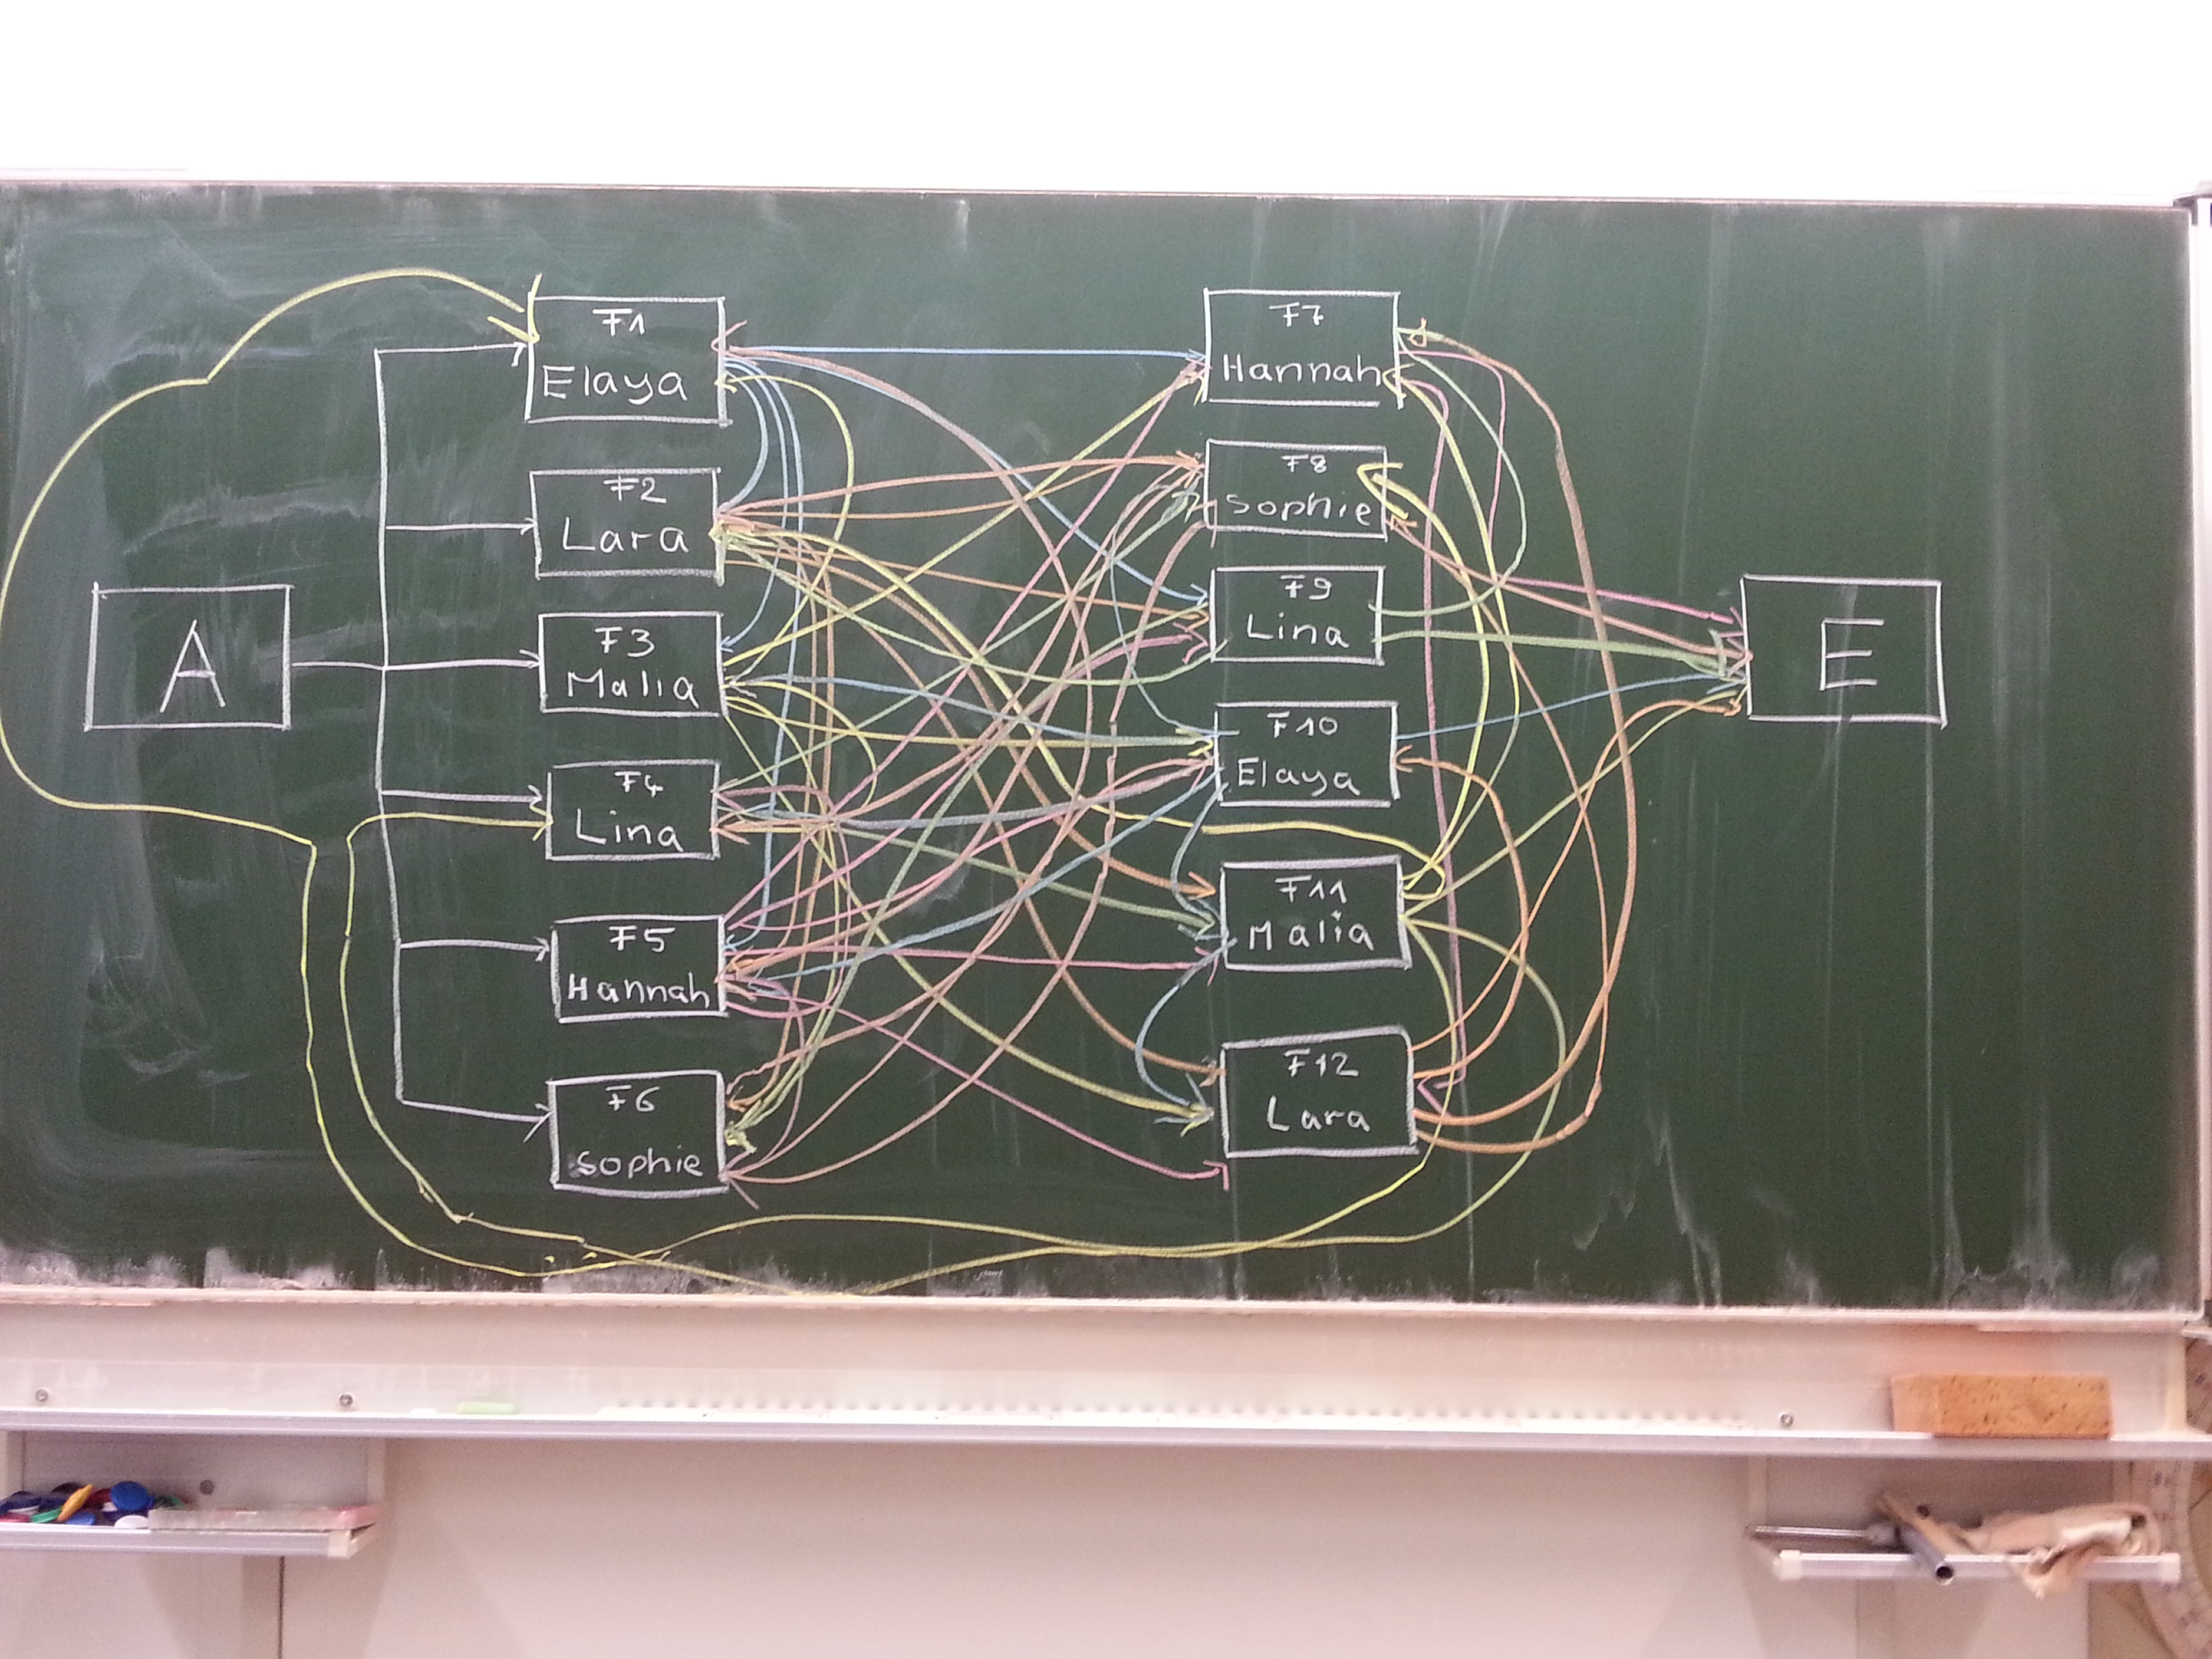 A
F1
Elaya
F2
Lara
F3
Malia
F4
Lina
F5
Hannah
F6
Sophie
F7
Hannah
F8
Sophie
F9
Lina
F10
Elaya
F11
Malia
F12
Lara
E